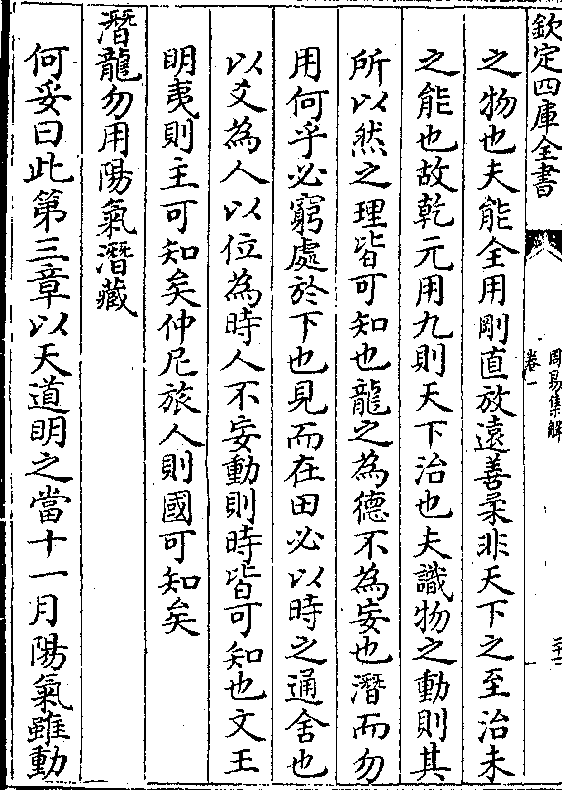 欽定四庫全書
周易集解
卷一
之物也夫能全用剛直放遠善柔非天下之至治未
之能也故乾元用九則天下治也夫識物之動則其
所以然之理皆可知也龍之為德不為妄也潛而勿
用何乎必窮處於下也見而在田必以時之通舍也
以爻為人以位為時人不妄動則時皆可知也文王
明夷則主可知矣仲尼旅人則國可知矣
潛龍勿用陽氣潛藏
何妥曰此第三章以天道明之當十一月陽氣雖動